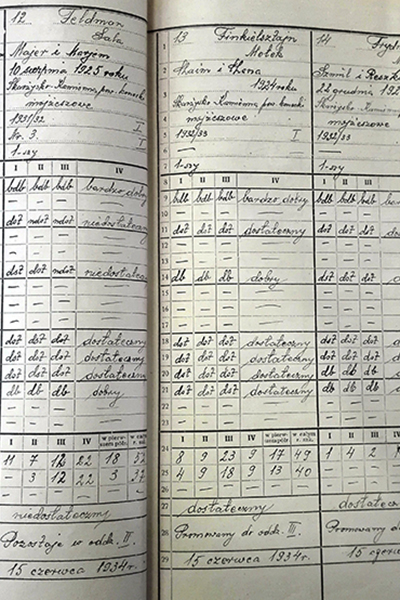 12 Feldman
Sala
Majer i Marjem
10 sierpnia 1925 roku
Skarżysko-Kamienna, pow. konecki
mojżeszowe
1931/32 I
Nr. 3. I
1-szy
I II III IV
bdb bdb bdb bardzo dobry
— — — —
dst ndst ndst niedostateczny
— — — —
dst dst ndst niedostateczny
— — — —
dst dst dst dostateczny
dst dst dst dostateczny
dst dst dst dostateczny
db db db dobry
— — — —
I II III IV w pierwszem półr. w całym r. szk.
11 7 12 22 18 52
— 3 12 22 3 37
— — — —
niedostateczny
Pozostaje w oddz. II.
15 czerwca 1934 r.
1 13 Finkielsztajn
Motek
2 Chaim i
3 1924 roku
4 Skarżysko Kamienna, pow. konecki
mojżeszowe
5 1932/33 I
6 —
7 1-szy
8 I II III IV
9 bdb bdb bdb bardzo dobry
10 — — — —
11 dst dst dst dostateczny
12 — — — —
13 — — — —
14 db db db dobry
15 — — — —
16 — — — —
17 — — — —
18 dst dst dst dostateczny
19 dst dst dst dostateczny
20 dst dst dst dostateczny
21 dst dst dst dostateczny
22 — — — —
23 — — — —
I II III IV w pierwszem półr. w całym r. szk.
24 8 9 23 9 17 49
25 4 9 18 9 13 40
26 — — — — — —
27 dostateczny
28 Promowany do oddz. III.
29 15 czerwca 1934 r.
14
Szmul i
22 grudnia 192
Skarżysko-Kamienna
mojżeszowe
1932/33
—
1-szy
I II III
bdb bdb bdb
— — —
dst dst dst
— — —
dst dst dst
— — —
dst dst dst
dst dst dst
db db db
db db db
— — —
I II III
1 4 2
— — —
Promowany
15 czerwca